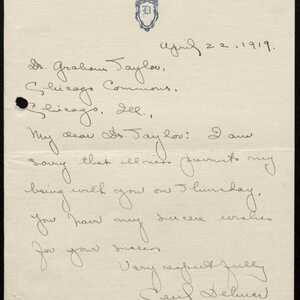 D
April 22, 1919.
Dr. Graham Taylor,
Chicago Commons,
Chicago, Ill.,
My dear Dr. Taylor: I am
sorry that illness prevents my
being with you on Thursday.
You have my sincere wishes
for your success.
Very respectfully
Delmer